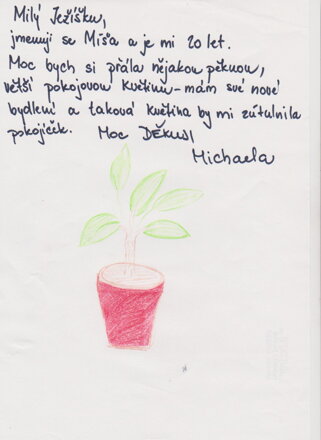 Milý Ježíšku,
jmenuji se Míša a je mi 20 let.
Moc bych si přála nějakou pěknou,
větší pokojovou květinu - mám své nové
bydlení a taková květina by mi zútulnila
pokojíček. Moc DĚKUJI
Michaela